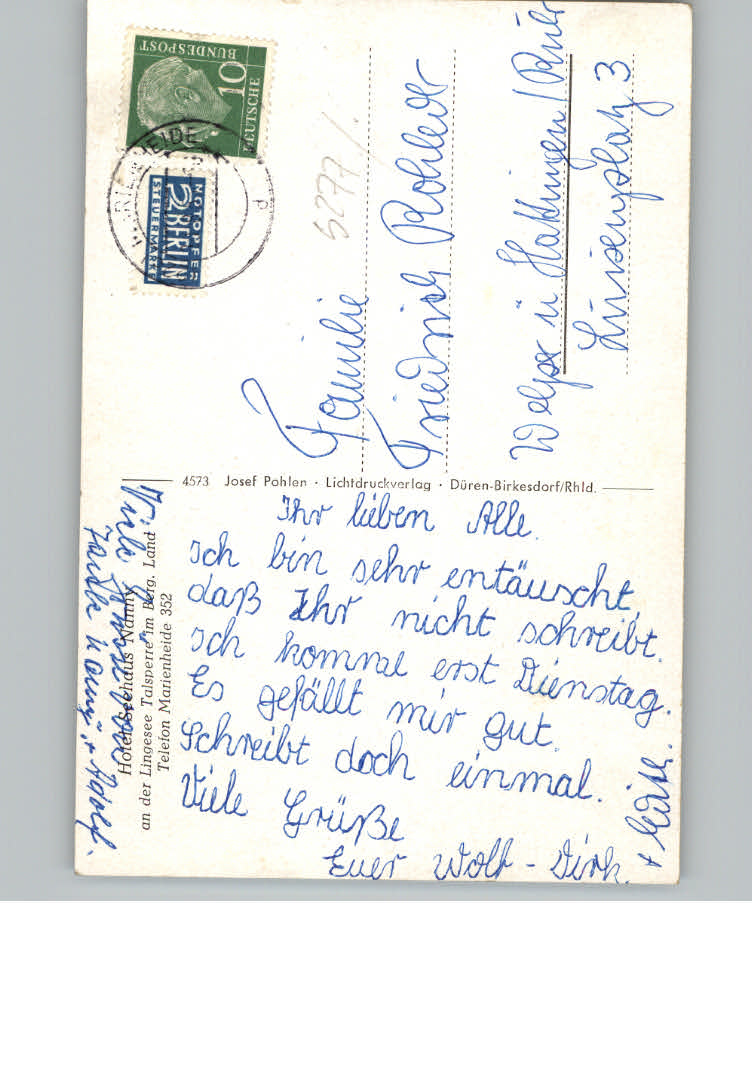 Ihr lieben Alle.
Ich bin sehr entäuscht,
daß Ihr nicht schreibt.
Ich komme erst Dienstag.
Es gefällt mir gut.
Schreibt doch einmal.
Viele Grüße
Euer Wolf - Dirk.
Viele Grüße
Hotel Seehaus Nanny
an der Lingesee Talsperre im Berg. Land
Telefon Marienheide 352
4573 Josef Pohlen · Lichtdruckverlag · Düren-Birkesdorf/Rhld.
Familie
Friedrich Rohleder
Welper ü Hattingen / Ruhr
Luisenplatz 3
5277
DEUTSCHE
BUNDESPOST
10
NOTOPFER
2 BERLIN
STEUERMARKE
MARIENHEIDE